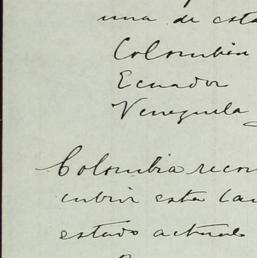 una de esta
Colombia
Ecuador
Venezuela
Colombia recon
cubrir esta
estado actual